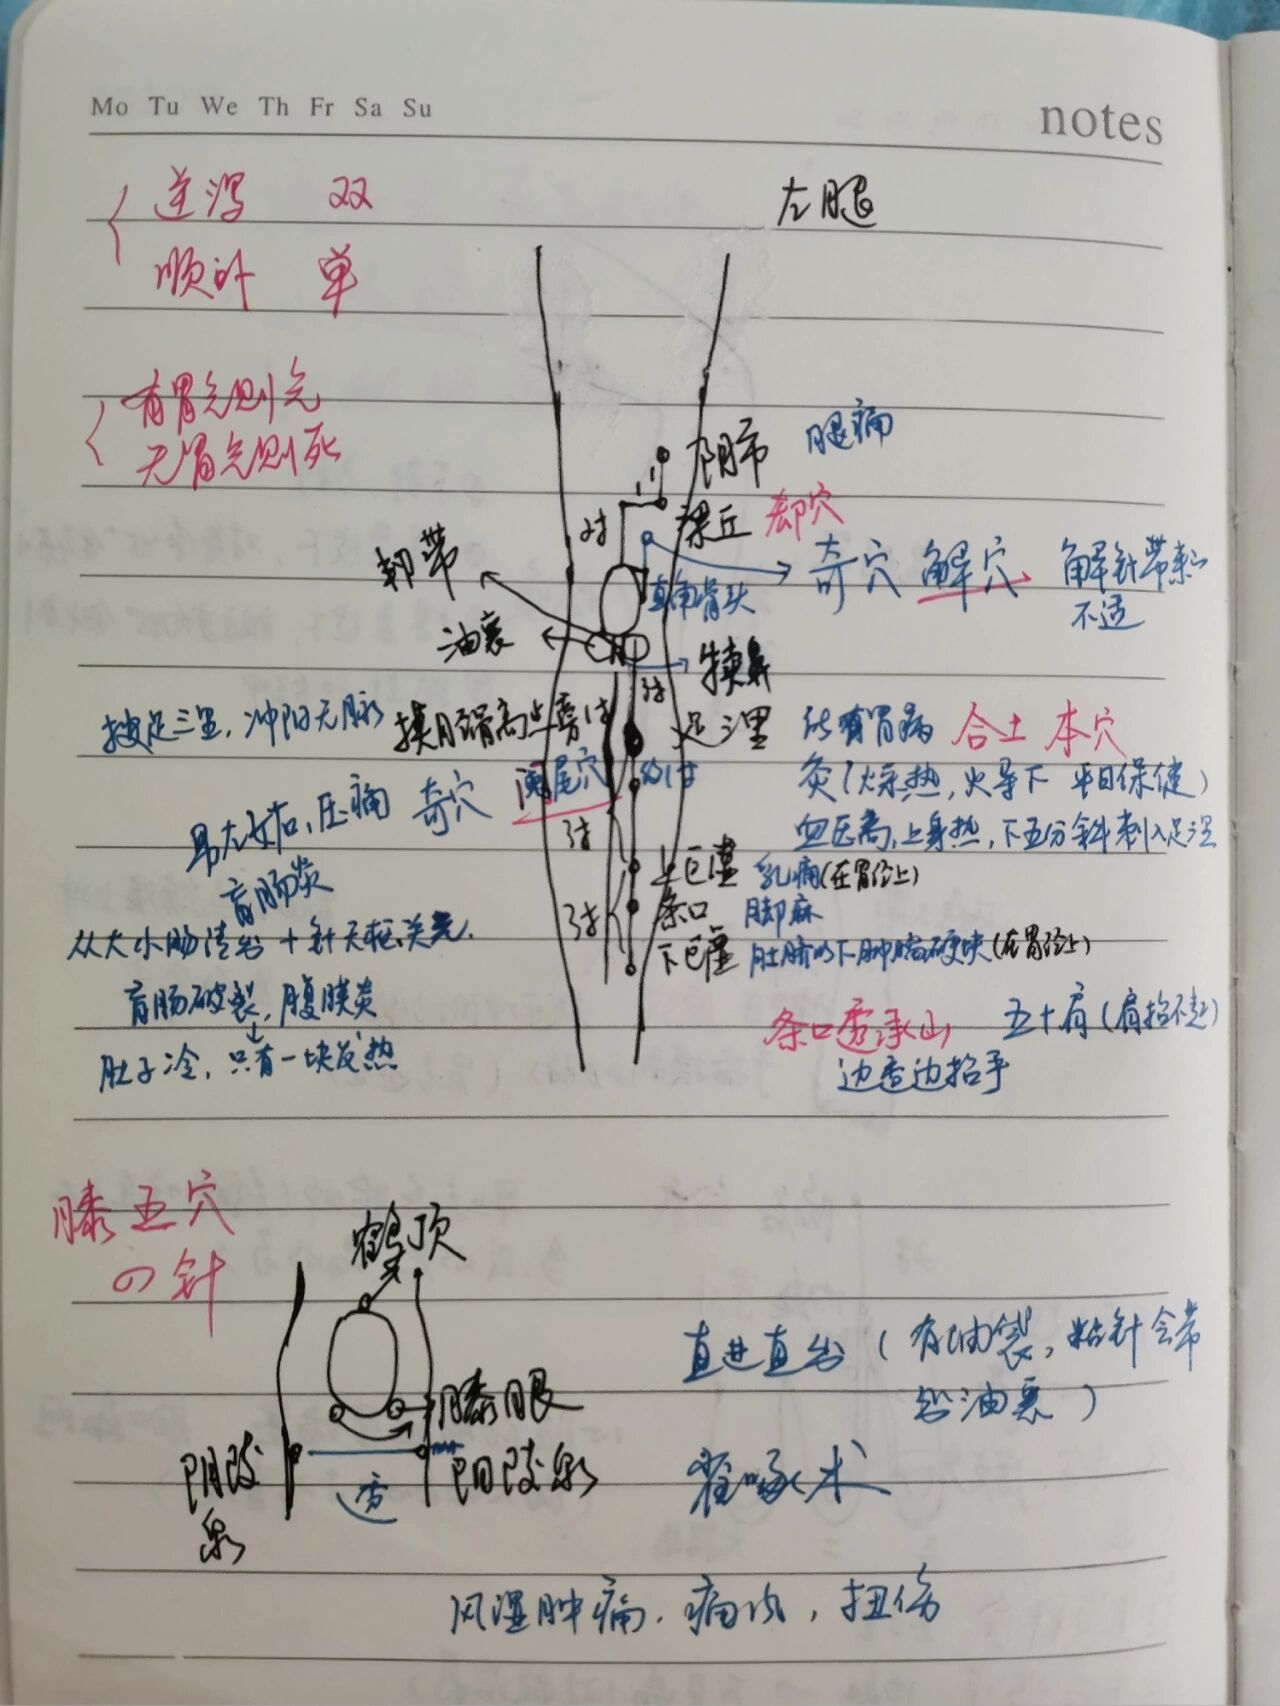 Mo Tu We Th Fr Sa Su
notes
逆泻 双
顺补 单
左腿
有胃气则生
无胃气则死
阴市 腿痛
2寸
梁丘 郄穴
韧带
直角骨头
奇穴 解穴 解针带来的
不适
油囊
犊鼻
3寸
按足三里,冲阳无脉
摸胫骨高点旁1寸
足三里 所有胃病 合土 本穴
灸(燥热,火导下 平日保健)
血压高,上身热,下五分斜刺入足三里
奇穴 阑尾穴
男左女右,压痛
盲肠炎
3寸
上巨虚 乳痛(在胃经上)
条口 脚麻
从大小肠清出 + 针天枢、关元.
3寸
下巨虚 肚脐以下肿瘤硬块(在胃经上)
盲肠破裂,腹膜炎
肚子冷,只有一块发热
条口透承山 五十肩(肩抬不起)
边查边抬手
膝五穴
四针
鹤顶
直进直出(有油袋,粘针会带
出油囊)
膝眼
阴陵
泉
透
阳陵泉
雀啄术
风湿肿痛.痛风,扭伤